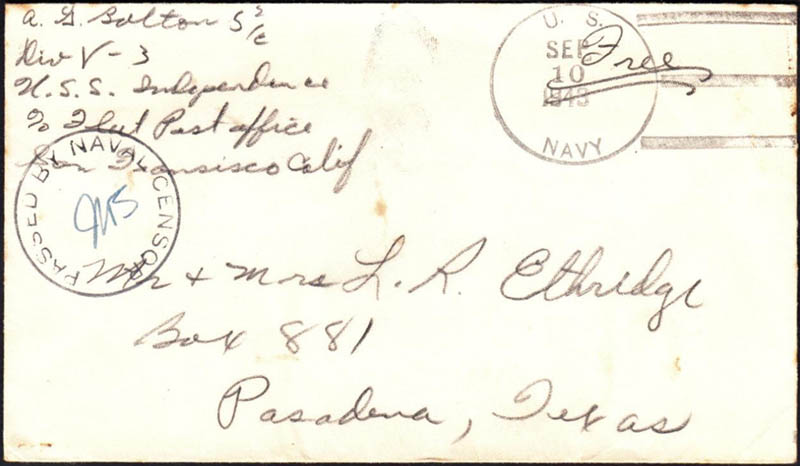 A. G. Bolton S 2/c
Div V-3
U.S.S. Independence
% Fleet Post office
San Fransisco Calif
U. S.
SEP
10
1943
NAVY
Free
PASSED BY NAVAL CENSOR
Mr + Mrs L. R. Ethridge
Box 881
Pasadena, Texas